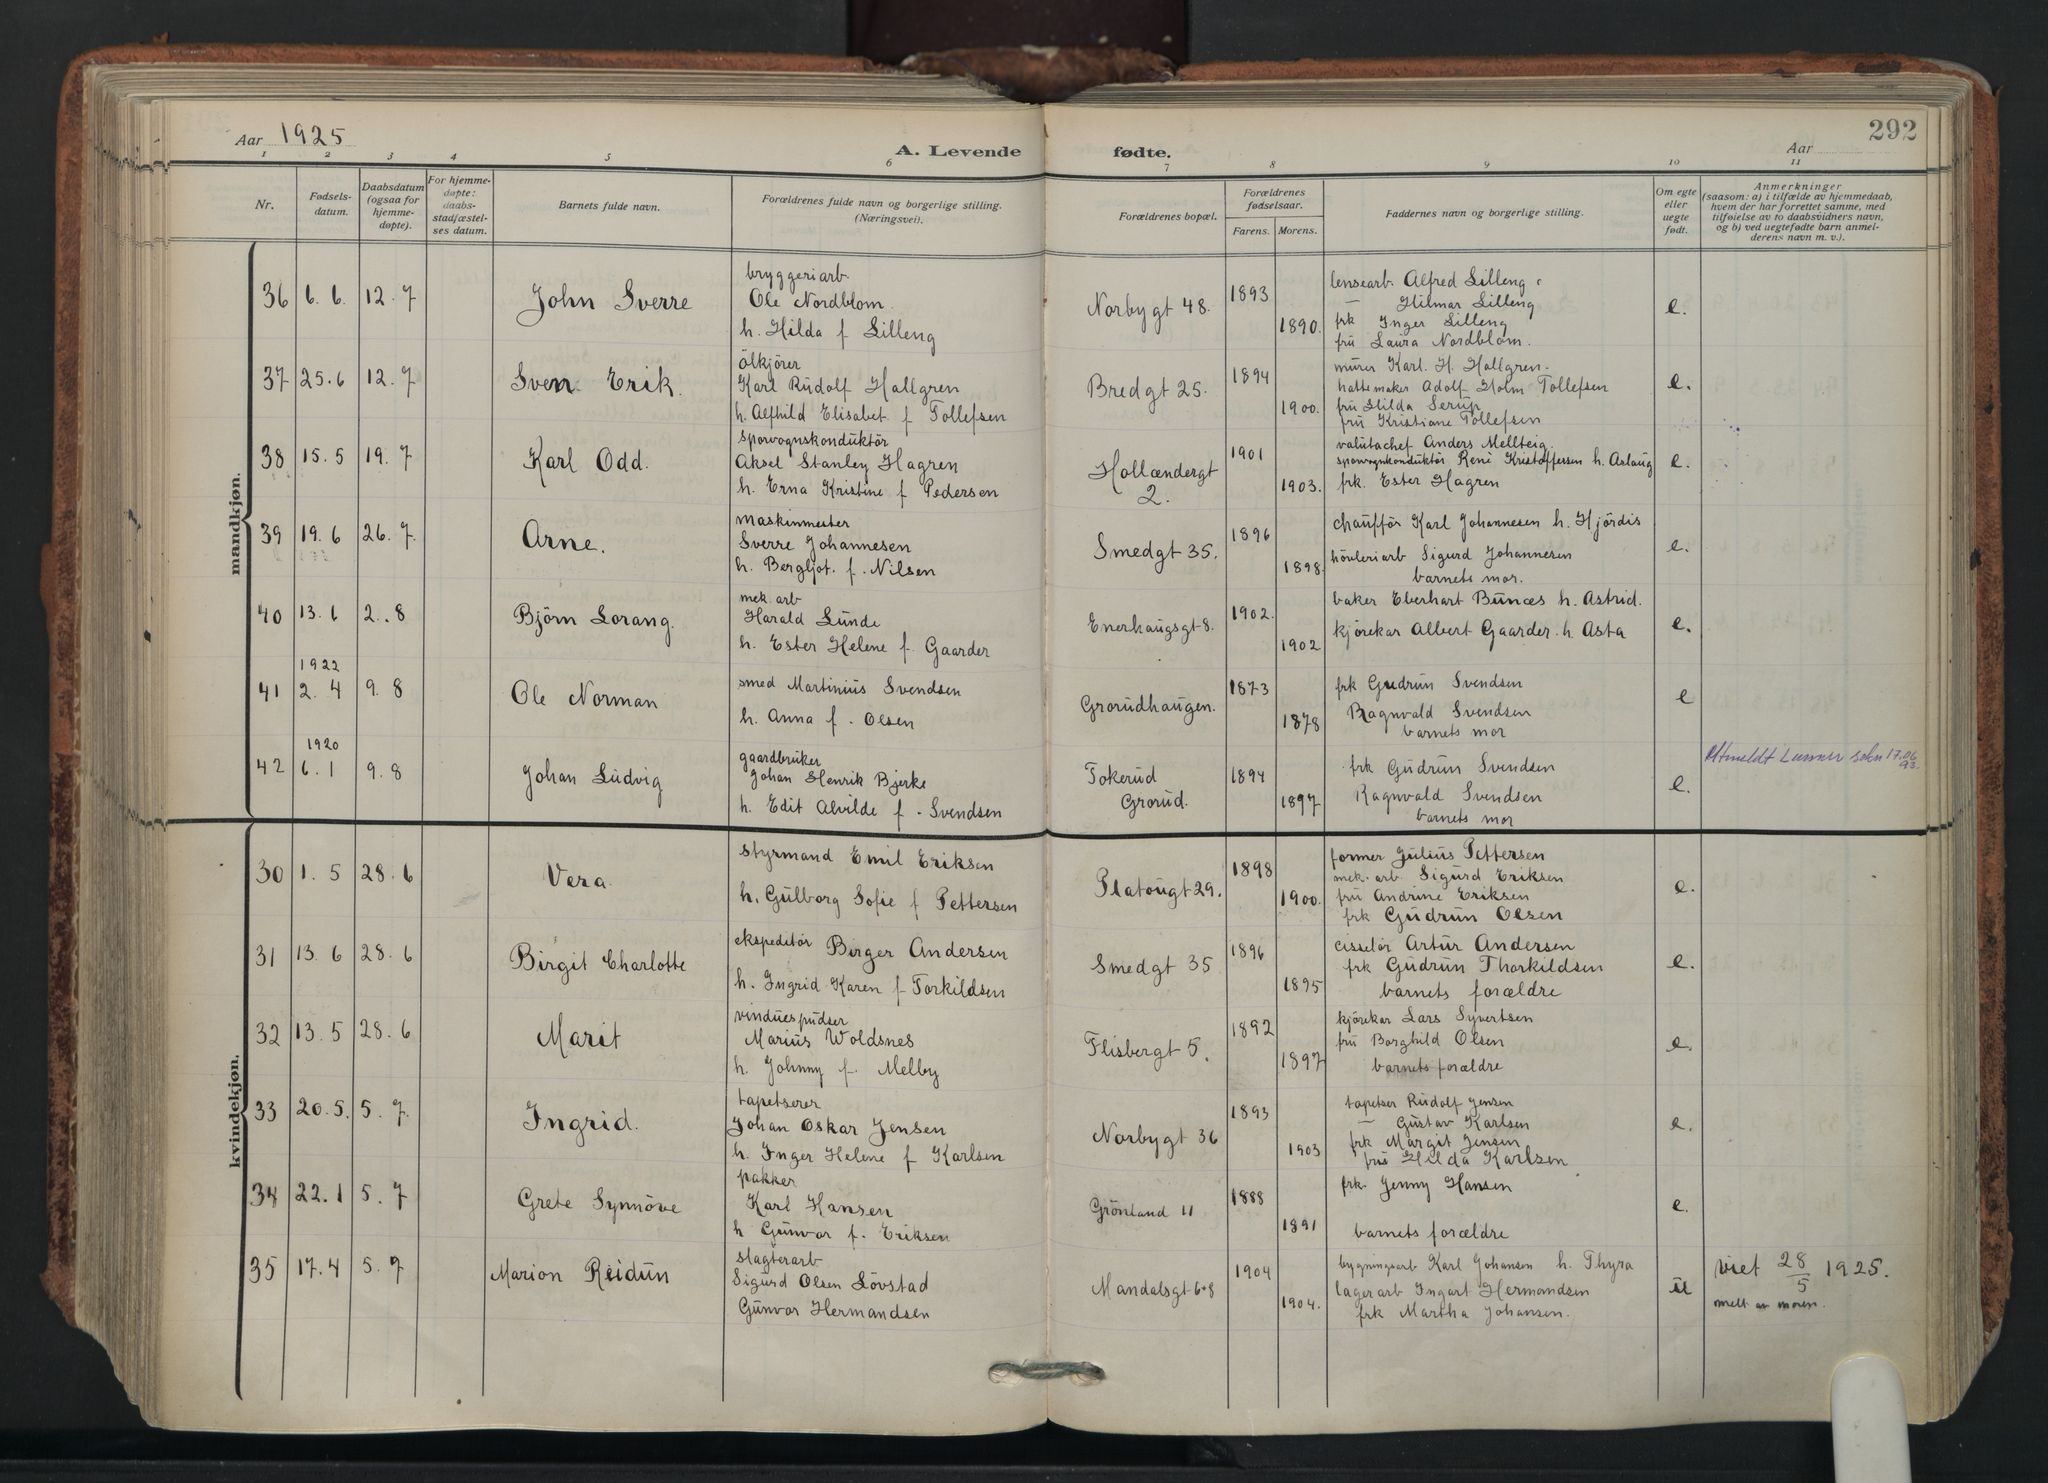 292
Aar 1925 A. Levende fødte. Aar
1 2 3 4 5 6 7 8 9 10 11
Nr. Fødselsdatum. Daabsdatum (ogsaa for hjemmedøpte). For hjemmedøpte: daabsstadfæstelses datum. Barnets fulde navn. Forældrenes fulde navn og borgerlige stilling. (Næringsvei). Forældrenes bopæl. Forældrenes fødselsaar. Farens. Morens. Faddernes navn og borgerlige stilling. Om egte eller uegte født. Anmerkninger (saasom: a) i tilfælde av hjemmedaab, hvem der har forrettet samme, med tilføielse av to daabsvidners navn, og b) ved uegtefødte barn anmelderens navn m. v.).
mandkjøn.
36 6.6. 12.7 John Sverre
bryggeriarb.
Ole Nordblom.
h. Hilda f Lilleng
Norbygt 48. 1893 1890.
lensearb Alfred Lilleng
— Hilmar Lilleng
frk Inger Lilleng
fru Laura Nordblom.
e.
37 25.6 12.7 Sven Erik.
ölkjører
Karl Rudolf Hallgren
h. Alfhild Elisabet f Tollefsen
Bredgt 25. 1894 1900.
murer Karl. H. Hallgren.
hattemaker Adolf Holm Tollefsen
fru Hilda Serup
fru Kristiane Tollefsen
e.
38 15.5 19.7 Karl Odd.
sporvognskonduktör
Aksel Stanley Hagren
h. Erna Kristine f Pedersen
Hollændergt 2. 1901 1903.
valutachef Anders Mellteig.
sporvognkonduktör René Kristoffersen h. Aslaug
frk. Ester Hagren
e.
39 19.6 26.7. Arne.
maskinmester
Sverre Johannesen
h. Bergljot. f. Nilsen
Smedgt 35. 1896 1898.
chaufför Karl Johannesen h. Hjördis
hövleriarb Sigurd Johannesen
barnets mor.
e.
40 13.6 2.8 Björn Lorang.
mek. arb
Harald Lunde
h. Ester Helene f. Gaarder
Enerhaugsgt 8. 1902. 1902
baker Eberhart Bunæs h. Astrid.
kjörekar Albert Gaarder. h. Asta
e.
41 1922 2.4 9.8 Ole Norman
smed Martinius Svendsen
h. Anna f. Olsen
Grorudhaugen. 1873 1878
frk Gudrun Svendsen
Ragnvald Svendsen
barnets mor
e
42 1920 6.1 9.8 Johan Ludvig
gaardbruker
Johan Henrik Bjerke
h. Edit Alvilde f. Svendsen
Tokerud Grorud. 1894 1897
frk Gudrun Svendsen
Ragnvald Svendsen
barnets mor
e.
Utmeldt Lunner sokn 17.06 93.
kvindekjøn.
30 1.5 28.6 Vera.
styrmand Emil Eriksen
h. Gulborg Sofie f Pettersen
Platougt 29. 1898 1900.
former Julius Pettersen
mek. arb Sigurd Eriksen
fru Andrine Eriksen
frk Gudrun Olsen
e.
31 13.6 28.6 Birgit Charlotte
ekspeditör Birger Andersen
h. Ingrid Karen f Torkildsen
Smedgt 35 1896 1895
ciselör Artur Andersen
frk Gudrun Thorkildsen
barnets forældre
e.
32 13.5 28.6 Marit
vinduespudser
Marius Woldsnes
h. Johnny f. Melby
Flisbergt 5. 1892 1897
kjörekar Lars Syvertsen
fru Borghild Olsen
barnets forældre
e.
33 20.5. 5.7. Ingrid.
tapetserer
Johan Oskar Jensen
h. Inger Helene f Karlsen
Norbygt 36 1893 1903
tapetser Rudolf Jensen
— Gustav Karlsen
frk Margit Jensen
fru Hilda Karlsen
e.
34 22.1 5.7 Grete Synnöve
pakker
Karl Hansen
h Gunvor f. Eriksen
Grönland 11 1888 1891
frk. Jenny Hansen
barnets forældre
e.
35 17.4 5.7 Marion Reidun
slagterarb
Sigurd Olsen Lövstad
Gunvor Hermandsen
Mandalsgt 6+8 1904 1904.
bygningsarb Karl Johansen h. Thyra
lagerarb Ingart Hermandsen
frk Martha Johansen.
u
viet 28/5 1925.
melt av moren.